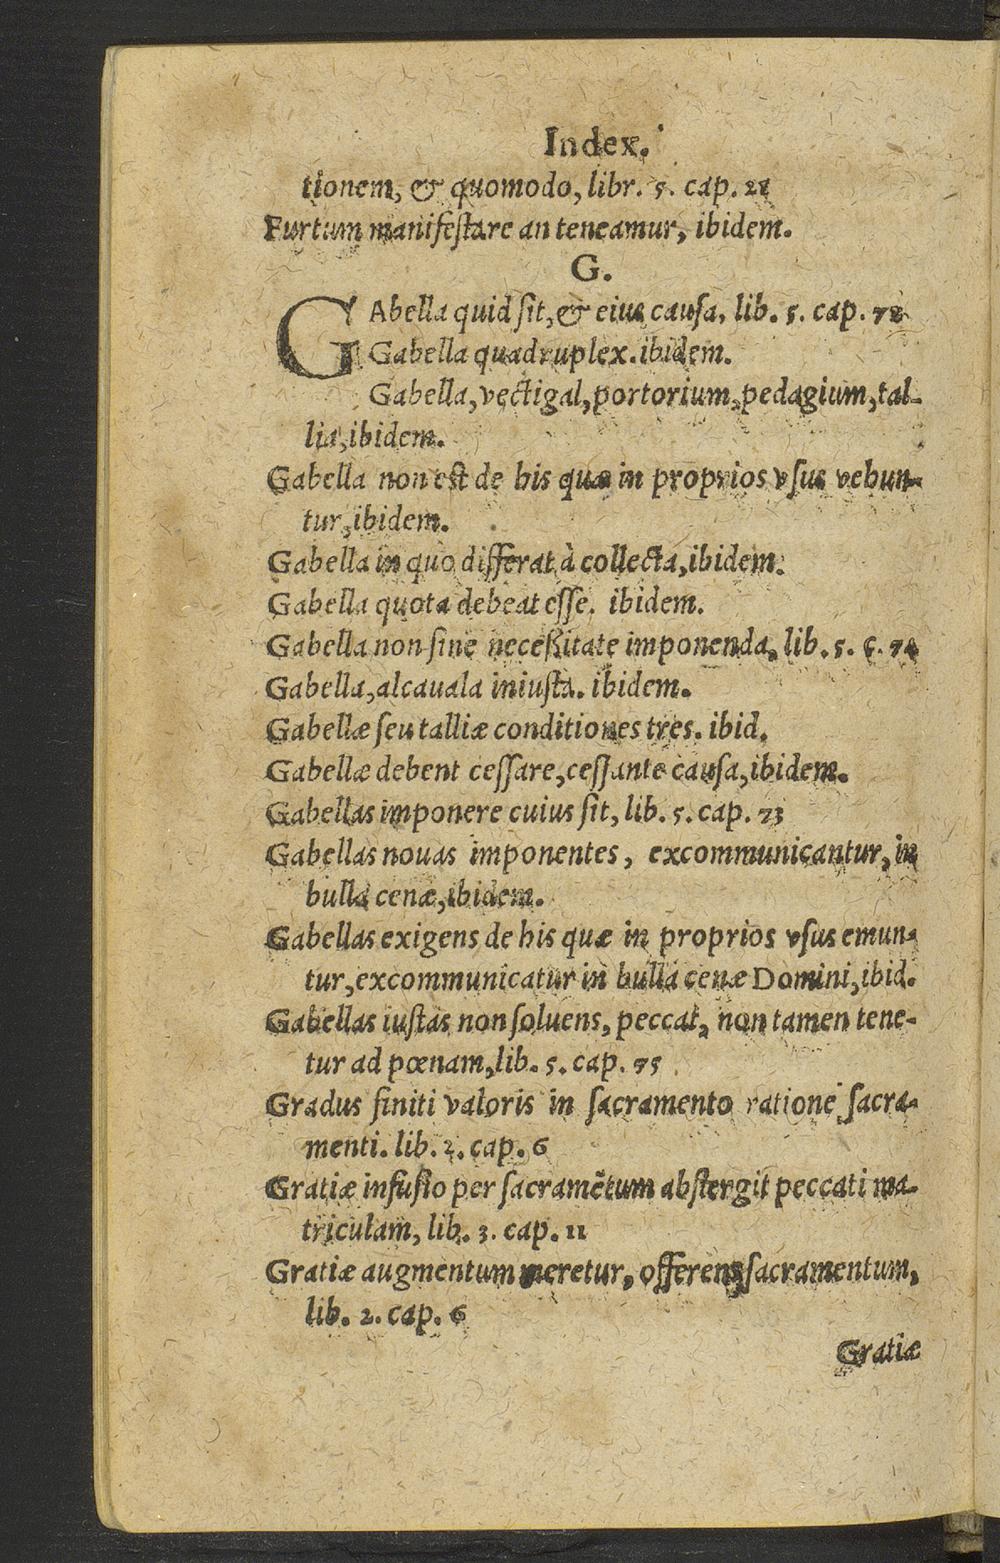 Index.
tionem, & quomodo, libr. 5. cap. 21
Furtum manifeſtare an teneamur, ibidem.
G.
GAbella quid ſit, & eius cauſa, lib. 5. cap. 72
Gabella quadruplex. ibidem.
Gabella, vectigal, portorium, pedagium, tal-
lia, ibidem.
Gabella non est de his quæ in proprios vſus vehun-
tur, ibidem.
Gabella in quo differat à collecta, ibidem.
Gabella quota debeat eſſe. ibidem.
Gabella non ſine neceßitate imponenda, lib. 5. c. 74
Gabella, alcauala iniuſta. ibidem.
Gabellæ ſeu talliæ conditiones tres. ibid.
Gabellæ debent ceſſare, ceſſante cauſa, ibidem.
Gabellas imponere cuius ſit, lib. 5. cap. 73
Gabellas nouas imponentes, excommunicantur, in
bulla cenæ, ibidem.
Gabellas exigens de his quæ in proprios vſus emun-
tur, excommunicatur in bulla cenæ Domini, ibid.
Gabellas iuſtas non ſoluens, peccat, non tamen tene-
tur ad pœnam, lib. 5. cap. 75
Gradus finiti valoris in ſacramento ratione ſacra-
menti. lib. 2. cap. 6
Gratiæ infuſio per ſacramẽtum abſtergit peccati ma-
triculam, lib. 3. cap. 11
Gratiæ augmentum meretur, offerens ſacramentum,
lib. 2. cap. 6
Gratiæ